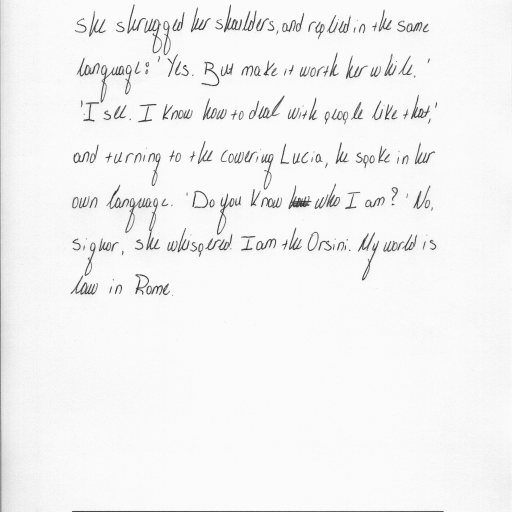 she shrugged her shoulders, and replied in the same
language: 'Yes. But make it worth her while.'
'I see. I know how to deal with people like that,'
and turning to the cowering Lucia, he spoke in her
own language. 'Do you know who I am?' 'No,
signor, she whispered. I am the Orsini. My world is
law in Rome.